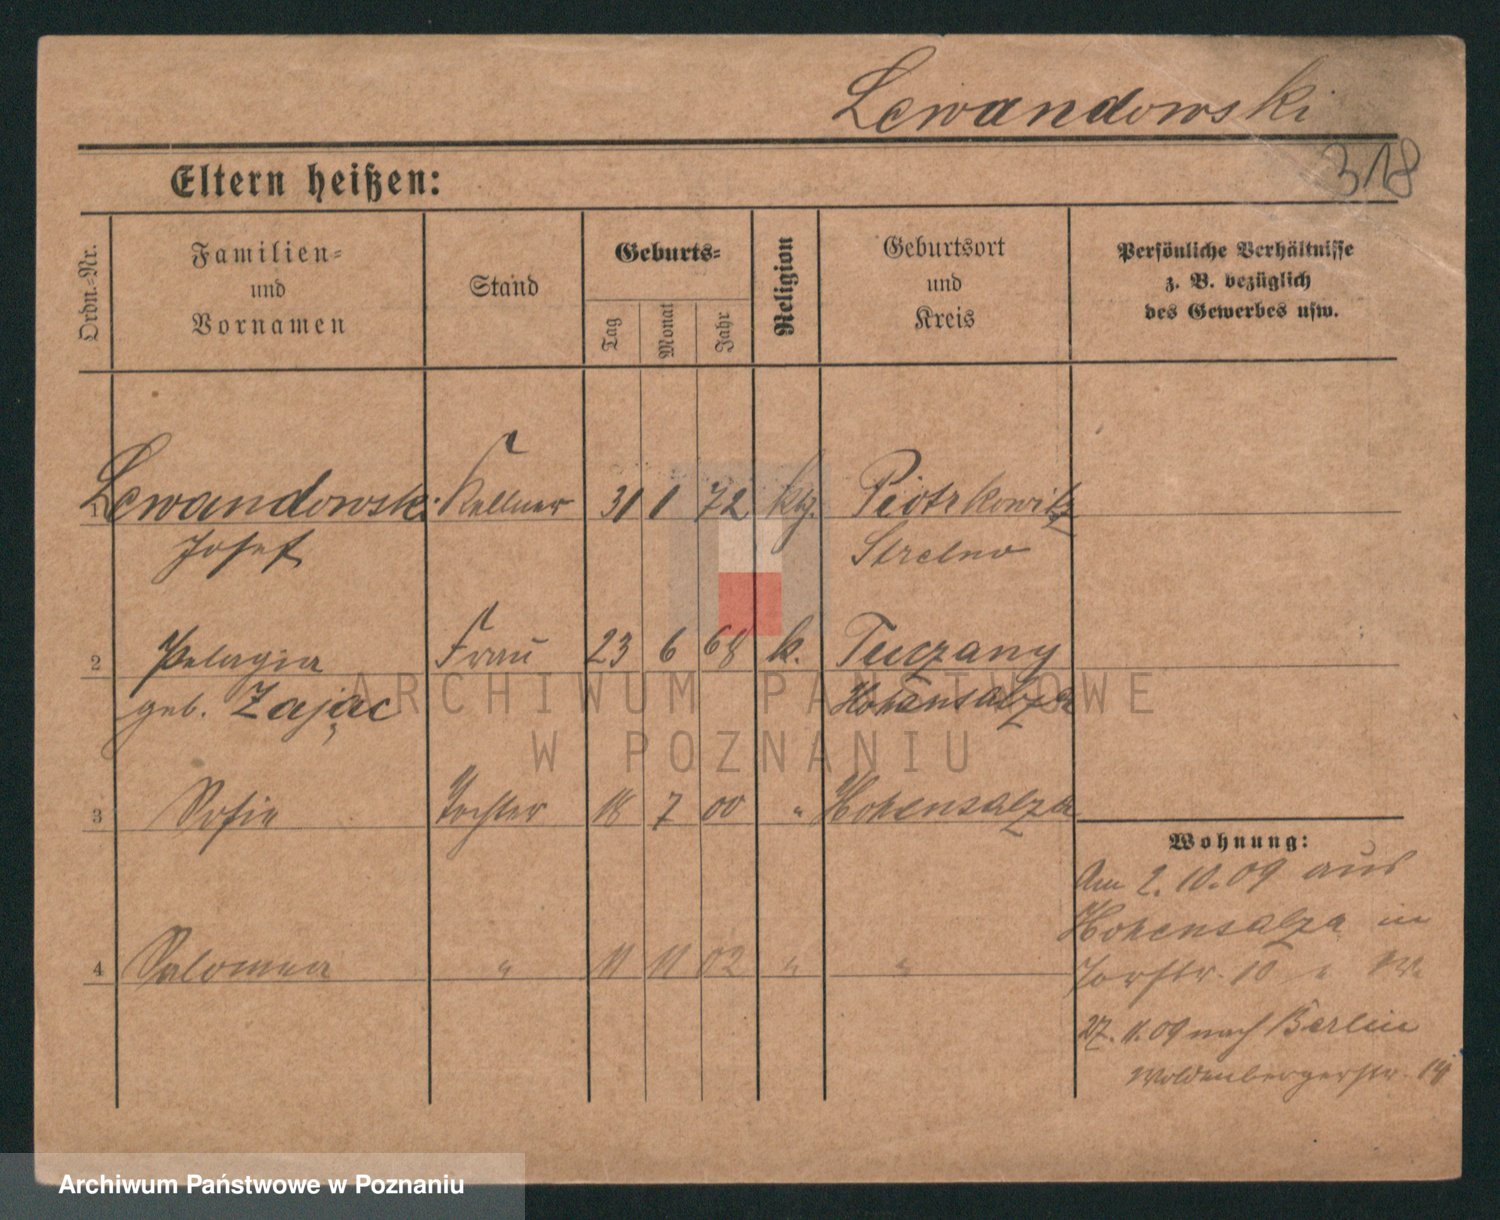 Lewandowski
318
Eltern heißen:
Ordn.-Nr.
Familien-
und
Vornamen
Stand
Geburts-
Tag
Monat
Jahr
Religion
Geburtsort
und
Kreis
Persönliche Verhältnisse
z. B. bezüglich
des Gewerbes usw.
1 Lewandowski Kellner 31 1 72 Kth. Piotrkowitz
Josef Strelno
2 Pelagia Frau 23 6 68 k. Tuczany
geb. Zając Hohensalza
3 Sofie Tochter 18 7 00 " Hohensalza
4 Salomea " 11 11 02 " "
Wohnung:
Am 2.10.09 aus
Hohensalza in
10
27.11.09 nach Berlin
Woldenbergerstr. 14
ARCHIWUM PAŃSTWOWE
W POZNANIU
Archiwum Państwowe w Poznaniu